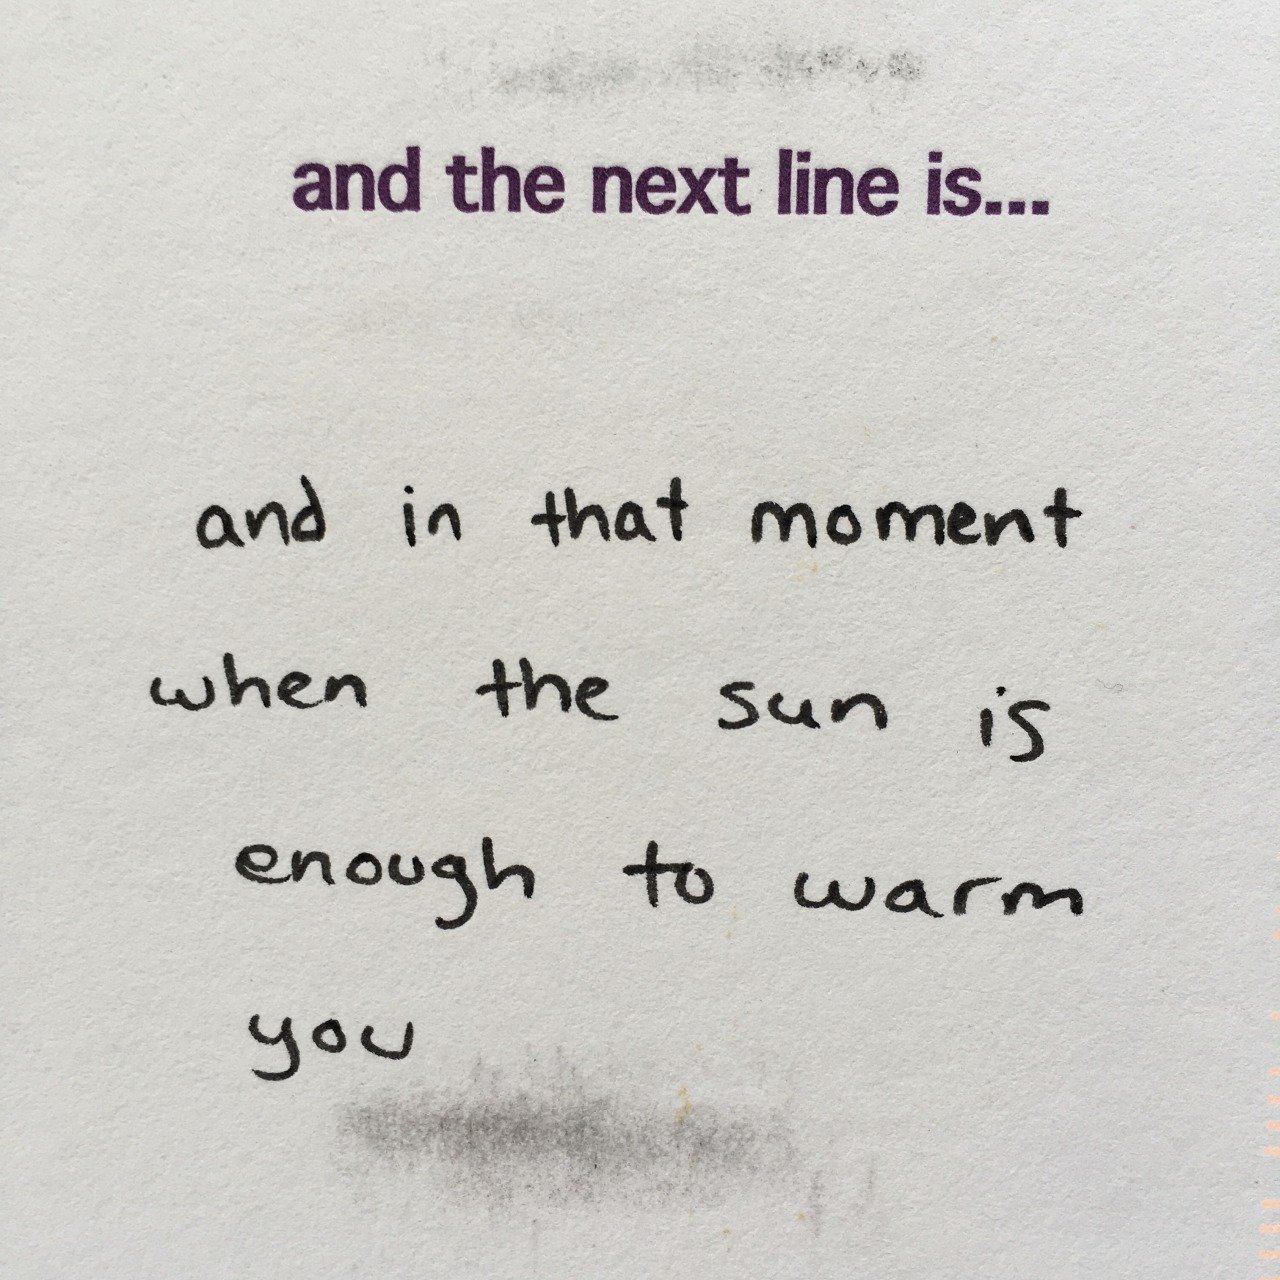 and the next line is...
and in that moment
when the sun is
enough to warm
you